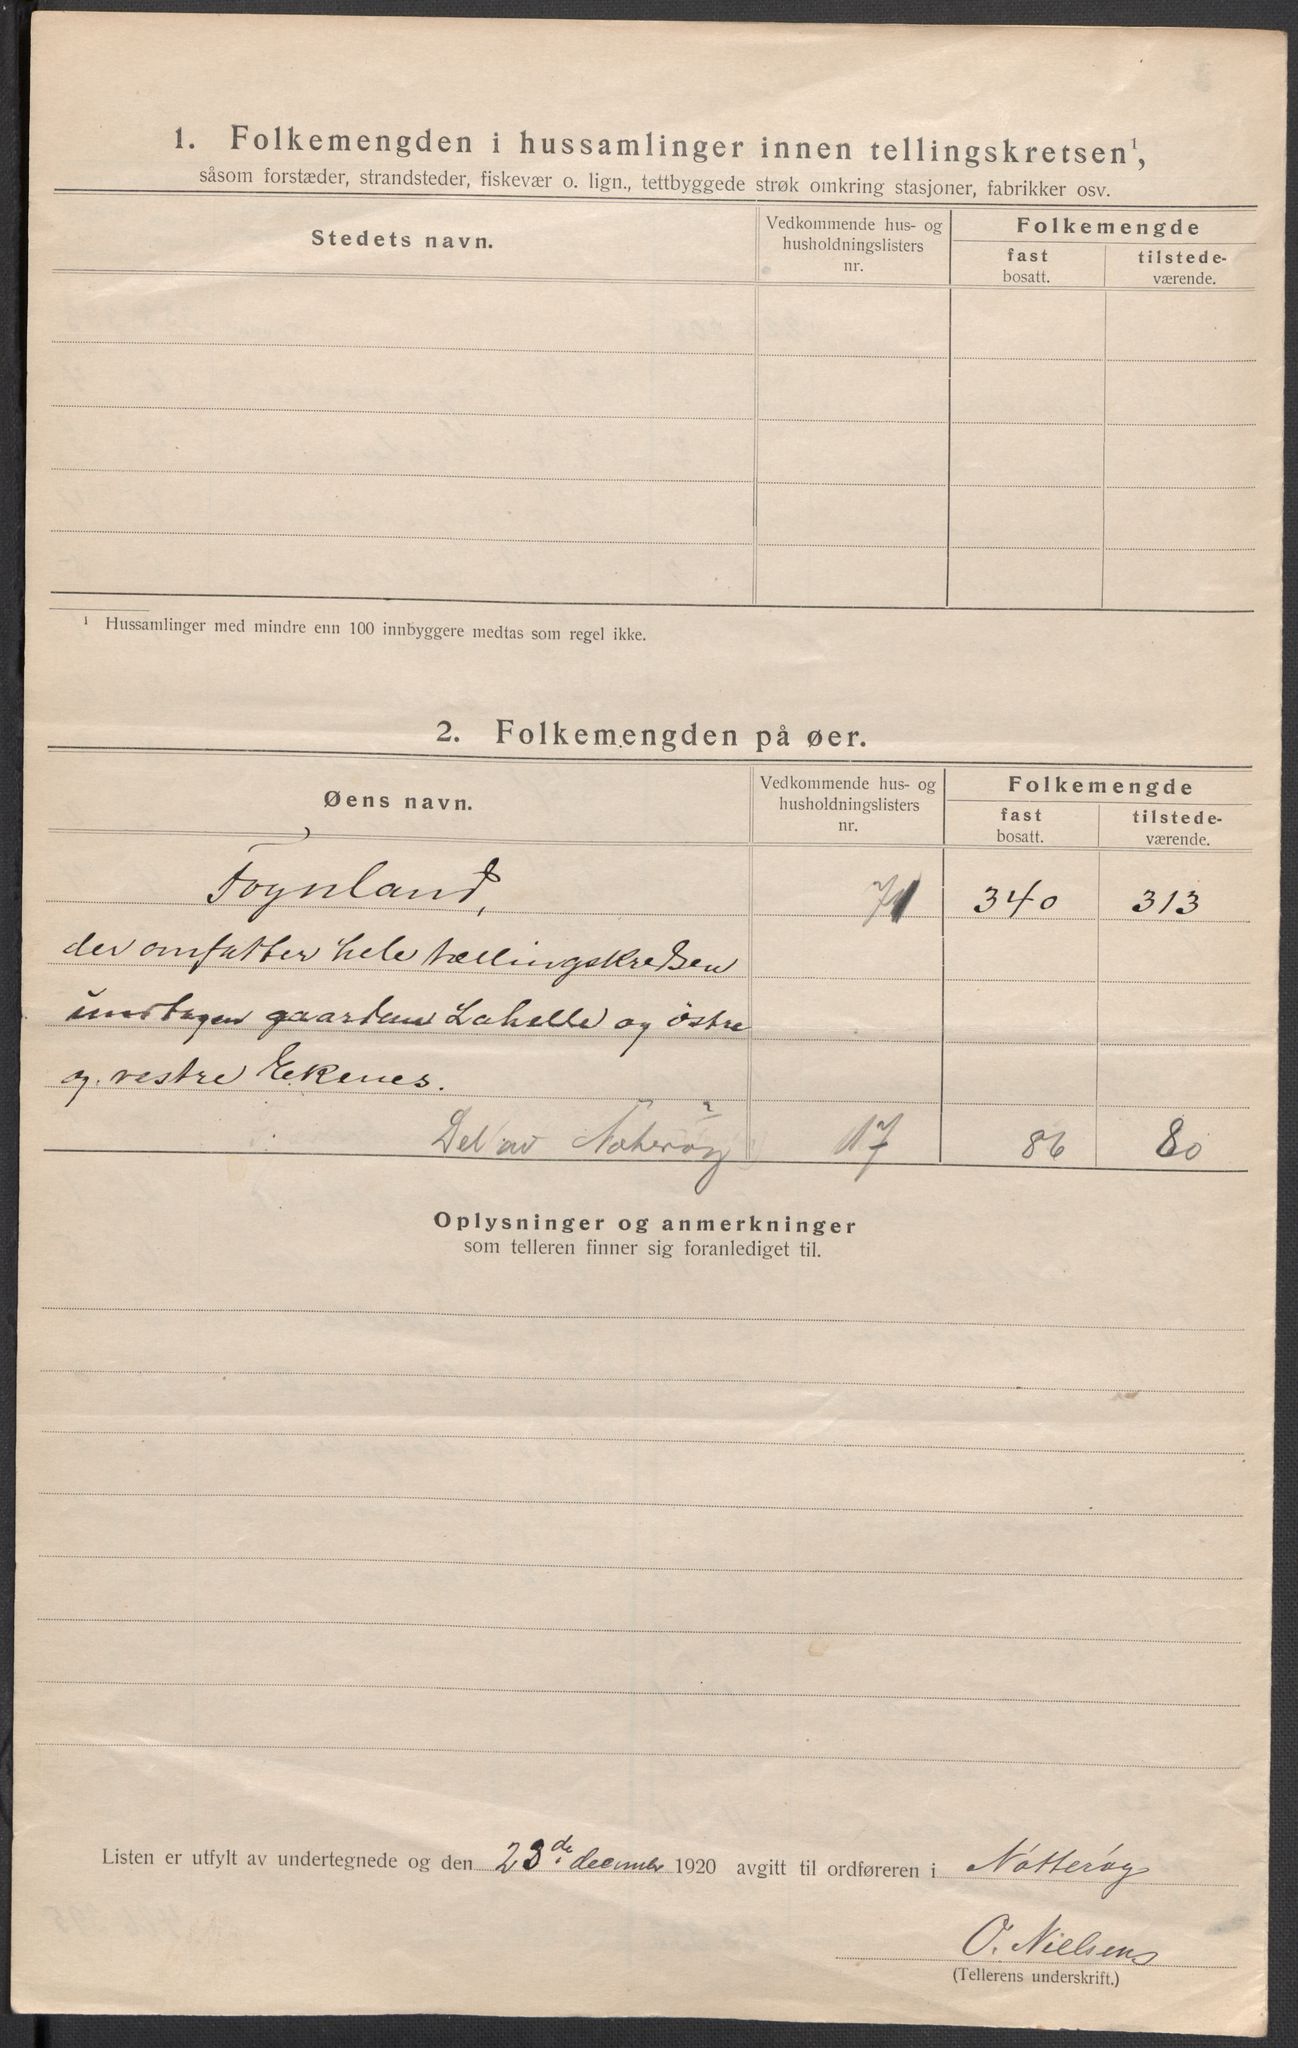 1. Folkemengden i hussamlinger innen tellingskretsen¹,
såsom forstæder, strandsteder, fiskevær o. lign., tettbyggede strøk omkring stasjoner, fabrikker osv.
Stedets navn. Vedkommende hus- og husholdningslisters nr. Folkemengde
fast bosatt. tilstede-værende.
¹ Hussamlinger med mindre enn 100 innbyggere medtas som regel ikke.
2. Folkemengden på øer.
Øens navn. Vedkommende hus- og husholdningslisters nr. Folkemengde
fast bosatt. tilstede-værende.
Föynland, 71 340 313
der omfatter hele tællingskredsen
undtagen gaardene Lahelle og östre
og vestre Ekenes.
Del av Nøterøy 17 86 80
Oplysninger og anmerkninger
som telleren finner sig foranlediget til.
Listen er utfylt av undertegnede og den 23de decmbr 1920 avgitt til ordføreren i Nötteröy
O. Nielsen
(Tellerens underskrift.)